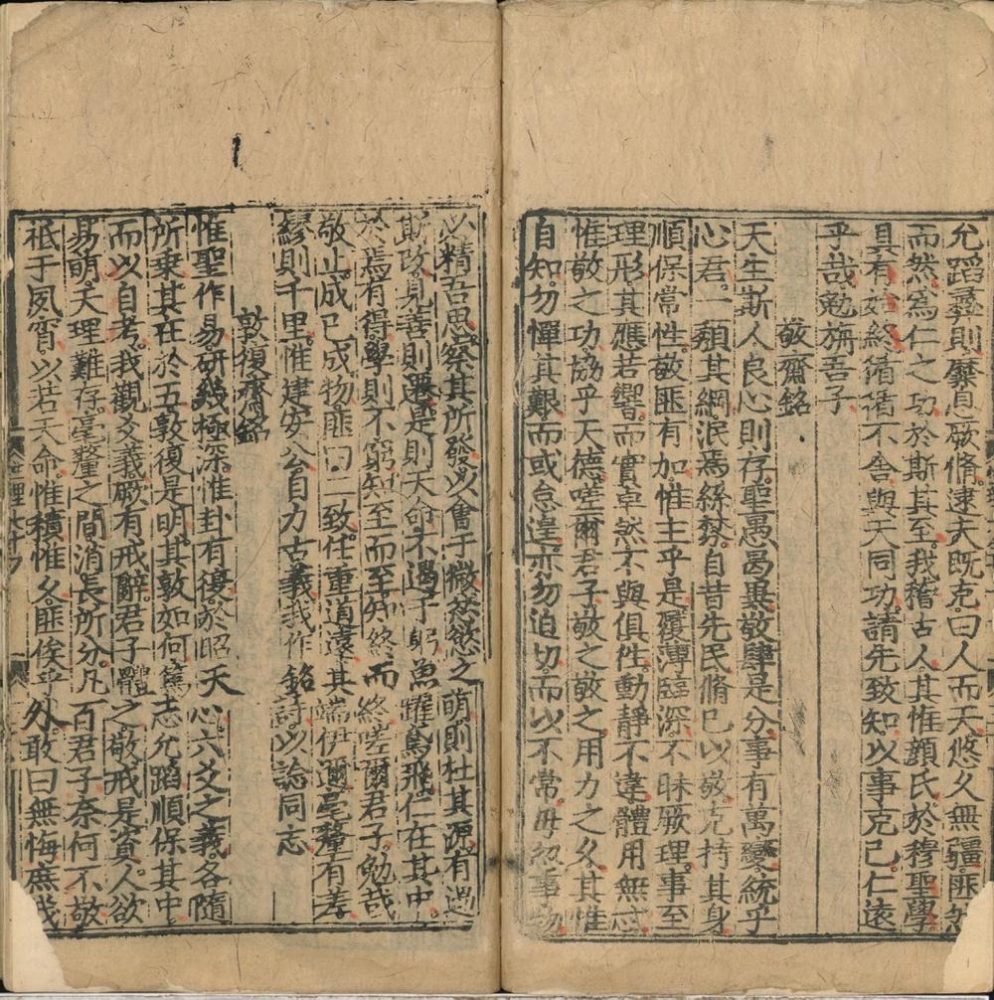 允蹈彝則靡息厥脩逮夫既克曰人而天悠久無疆匪
而然爲仁之功於斯其至我稽古人其惟顏氏於穆聖學
具有始終循循不舍與天同功請先致知以事克己仁遠
乎哉勉旃吾子
敬齋銘
天生斯人良心則存聖愚曷異敬肆是分事有萬變統乎
心君一頹其綱泯焉絲棼自昔先民脩己以敬克持其身
順保常性敬匪有加惟主乎是履薄臨深不昧厥理事至
理形其應若響而實卓然不與俱往動靜不違體用無忒
惟敬之功協乎天德嗟爾君子敬之敬之用力之久其惟
自知勿憚其艱而或怠遑亦勿迫切而以不常毋忽事物
必精吾思察其所發以會于微忿慾之萌則杜其源有過
斯改見善則遷是則天命不遏于躬魚躍鳶飛仁在其中
於焉有得學則不窮知至而至知終而終嗟爾君子勉哉
敬止成己成物匪曰二致任重道遠其端伊邇毫釐有差
繆則千里惟建安公自力古義我作銘詩以諗同志
敦復齋銘
惟聖作易研幾極深惟卦有復於昭天心六爻之義各隨
所乘其在於五敦復是明其敦如何篤志允蹈順保其中
而以自考我觀爻義厥有戒辭君子體之敬戒是資人欲
易萌天理難存毫釐之間消長所分凡百君子奈何不敬
祗于夙宵以若天命惟積惟久匪俟乎外敢曰無悔庶幾